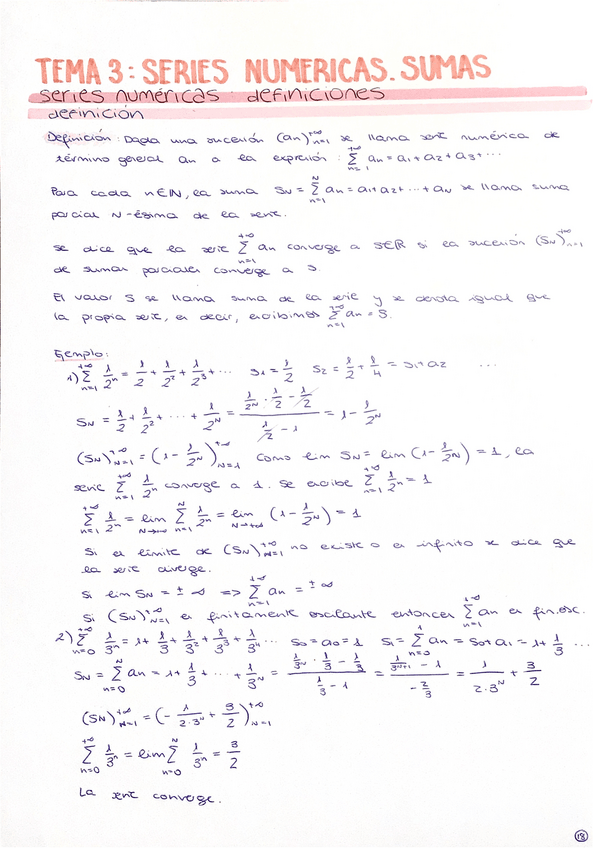 TEMA 3: SERIES NUMERICAS. SUMAS
series numéricas: definiciones
definición
Definición: Dada una sucesión (an)_{n=1}^{+∞} se llama serie numérica de
término general an a la expresión: \sum_{n=1}^{+∞} an = a1 + a2 + a3 + ...
Para cada n∈ℕ, la suma SN = \sum_{n=1}^{N} an = a1 + a2 + ... + aN se llama suma
parcial N-ésima de la serie.
se dice que la serie \sum_{n=1}^{+∞} an converge a S∈ℝ si la sucesión (SN)_{n=1}^{+∞}
de sumas parciales converge a S.
El valor S se llama suma de la serie y se denota igual que
la propia serie, es decir, escribimos \sum_{n=1}^{+∞} an = S.
Ejemplo:
1) \sum_{n=1}^{+∞} 1/2^n = 1/2 + 1/2^2 + 1/2^3 + ... S1 = 1/2 S2 = 1/2 + 1/4 = S1 + a2 ...
SN = 1/2 + 1/2^2 + ... + 1/2^N = (1/2^N · 1/2 - 1/2)/(1/2 - 1) = 1 - 1/2^N
(SN)_{N=1}^{+∞} = (1 - 1/2^N)_{N=1}^{+∞} como lim SN = lim (1 - 1/2^N) = 1, la
serie \sum_{n=1}^{+∞} 1/2^n converge a 1. Se escribe \sum_{n=1}^{+∞} 1/2^n = 1
\sum_{n=1}^{+∞} 1/2^n = lim_{N→+∞} \sum_{n=1}^{N} 1/2^n = lim_{N→+∞} (1 - 1/2^N) = 1
Si el límite de (SN)_{N=1}^{+∞} no existe o es infinito se dice que
la serie diverge.
Si lim SN = ±∞ => \sum_{n=1}^{+∞} an = ±∞
Si (SN)_{N=1}^{+∞} es finitamente oscilante entonces \sum_{n=1}^{+∞} an es fin.osc.
2) \sum_{n=0}^{+∞} 1/3^n = 1 + 1/3 + 1/3^2 + 1/3^3 + 1/3^4 ... S0 = a0 = 1 S1 = \sum_{n=0}^{1} an = S0 + a1 = 1 + 1/3 ...
SN = \sum_{n=0}^{N} an = 1 + 1/3 + ... + 1/3^N = (1/3^N · 1/3 - 1/3)/(1/3 - 1) = (1/3^{N+1} - 1)/(-2/3) = 1/(2·3^N) + 3/2
(SN)_{N=1}^{+∞} = (-1/(2·3^N) + 3/2)_{N=1}^{+∞}
\sum_{n=0}^{+∞} 1/3^n = lim \sum_{n=0}^{N} 1/3^n = 3/2
La serie converge.
18